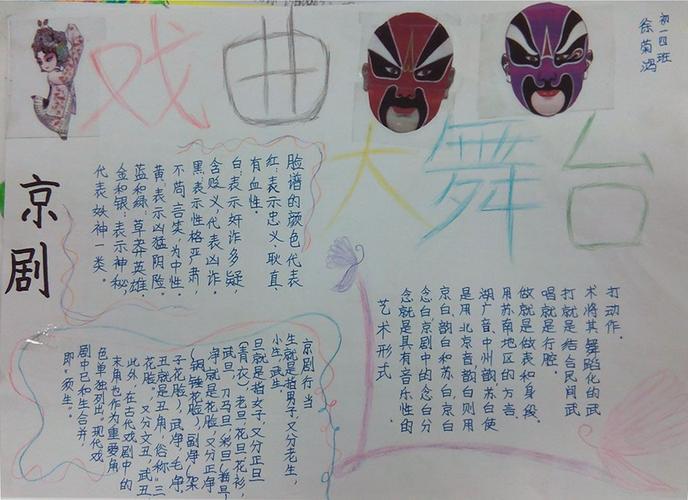 戏曲
大舞台
初一四班
徐菊鸿
京剧
脸谱的颜色代表
红:表示忠义、耿直、
有血性。
白:表示奸诈多疑,
含贬义,代表凶诈。
黑:表示性格严肃,
不苟言笑,为中性。
黄:表示凶猛阴险。
蓝和绿:草莽英雄。
金和银:表示神秘,
代表妖神一类。
艺术形式
念就是具有音乐性的
念白,京剧中的念白分
京白、韵白和苏白,京白
是用北京音韵白则用
湖广音、中州韵,苏白使
用苏南地区的方言、
做就是做表和身段。
唱就是行腔、
打就是结合民间武
术将其舞蹈化的武
打动作。
京剧行当
生就是指男子,又分老生,
小生,武生。
旦就是指女子,又分正旦
(青衣)、老旦、花旦、花衫、
武旦、刀马旦、彩旦
净就是花脸,又分正净
(铜锤花脸)、副净(架
子花脸)、武净,毛净。
丑就是丑角,俗称“三
花脸”,又分文丑、武丑
此外,在古代戏剧中的
末角也作为重要角
色单独列出,现代戏
剧中已和生合并,
即须生。